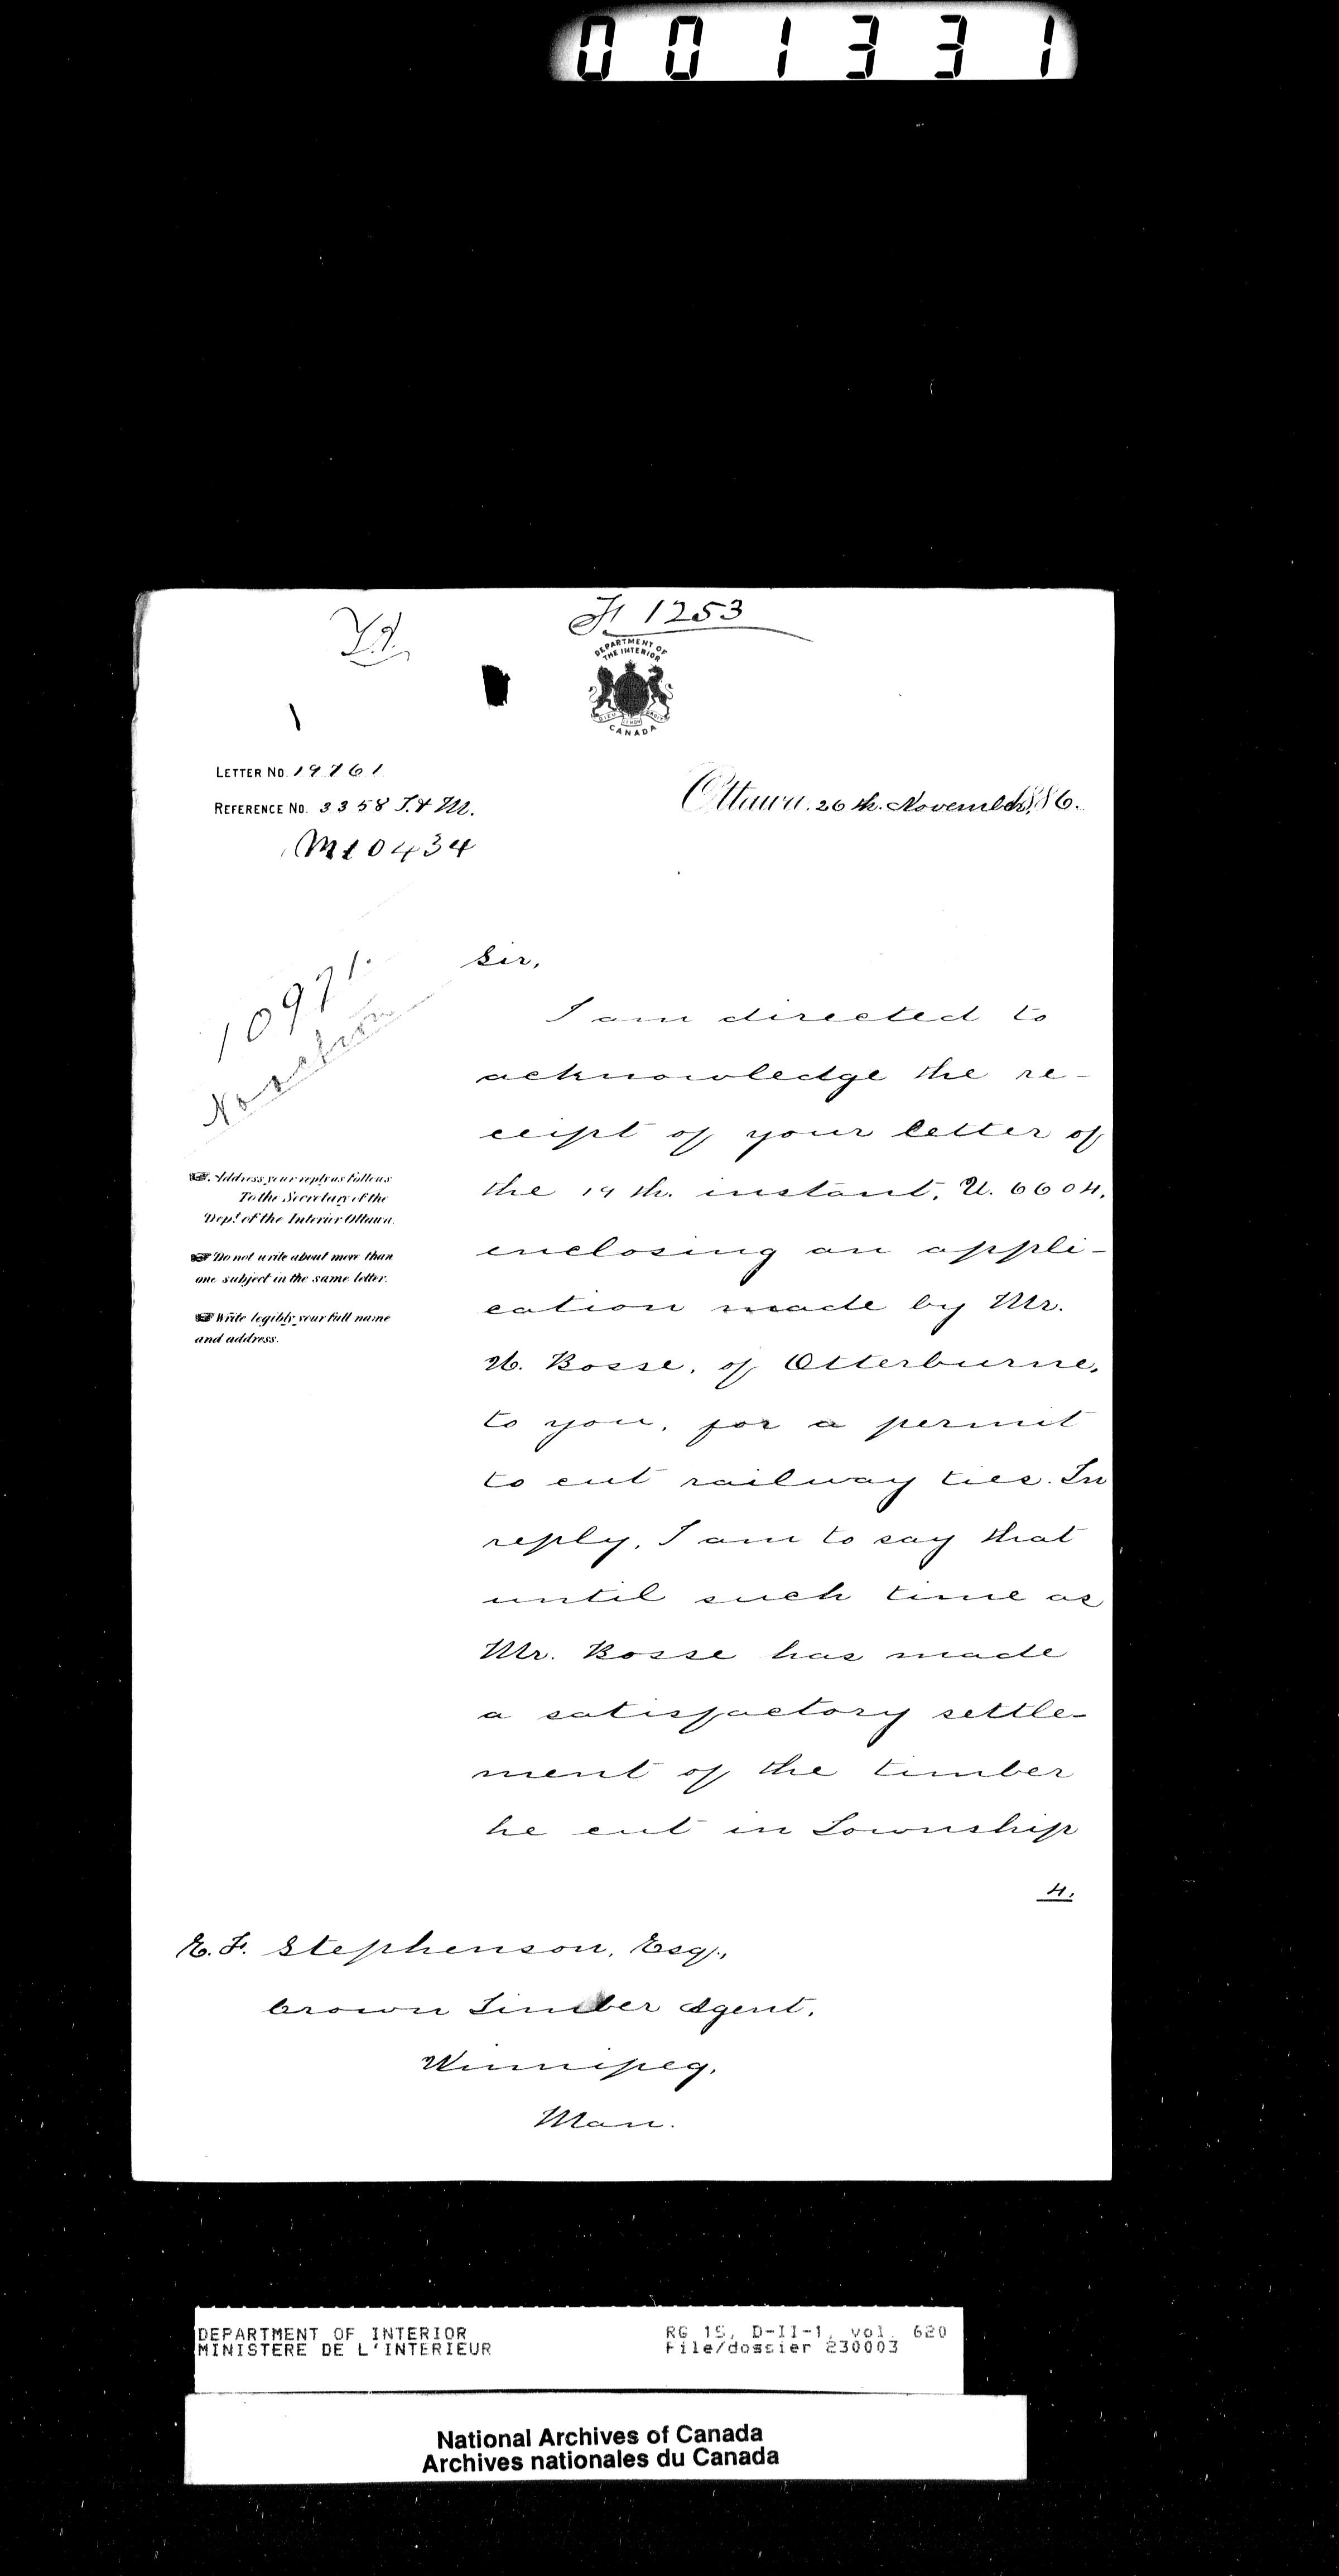 001331
F 1253
DEPARTMENT OF
THE INTERIOR
DIEU ET MON DROIT
CANADA
LETTER NO. 19761
REFERENCE NO. 3358 T. & M.
M10434
Ottawa, 26th. November, 1886.
10971.
No action
Sir,
I am directed to
acknowledge the re-
ceipt of your letter of
the 19th. instant, U. 6604,
enclosing an appli-
cation made by Mr.
N. Bosse, of Otterburne,
to you, for a permit
to cut railway ties. In
reply, I am to say that
until such time as
Mr. Bosse has made
a satisfactory settle-
ment of the timber
he cut in Township
4,
Address your reply as follows
To the Secretary of the
Dept. of the Interior Ottawa.
Do not write about more than
one subject in the same letter.
Write legibly your full name
and address.
E. F. Stephenson, Esq.,
Crown Timber Agent,
Winnipeg,
Man.
DEPARTMENT OF INTERIOR
MINISTERE DE L'INTERIEUR
RG 15, D-II-1, vol. 620
File/dossier 230003
National Archives of Canada
Archives nationales du Canada